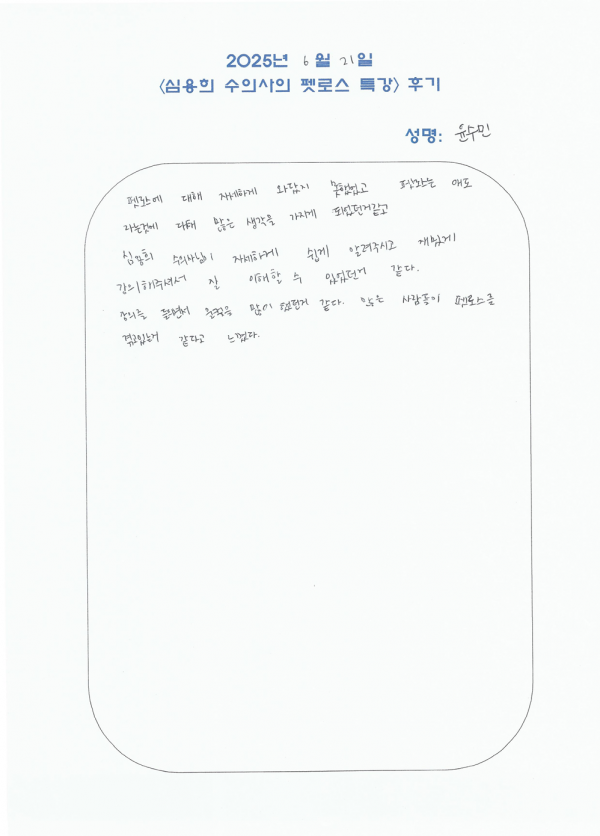 2025년 6월 21일
<심용희 수의사의 펫로스 특강> 후기
성명: 윤수민
펫로스에 대해 자세하게 와닿지 못했었고 펫로스는 애도
라는것에 대해 많은 생각을 가지게 되었던거같고
심용희 수의사님이 자세하게 쉽게 알려주시고 재밌게
강의해주셔서 잘 이해할 수 있었던거 같다.
강의를 들으면서 운적을 많이 했던거 같다. 많은 사람들이 펫로스를
겪고있는거 같다고 느꼈다.